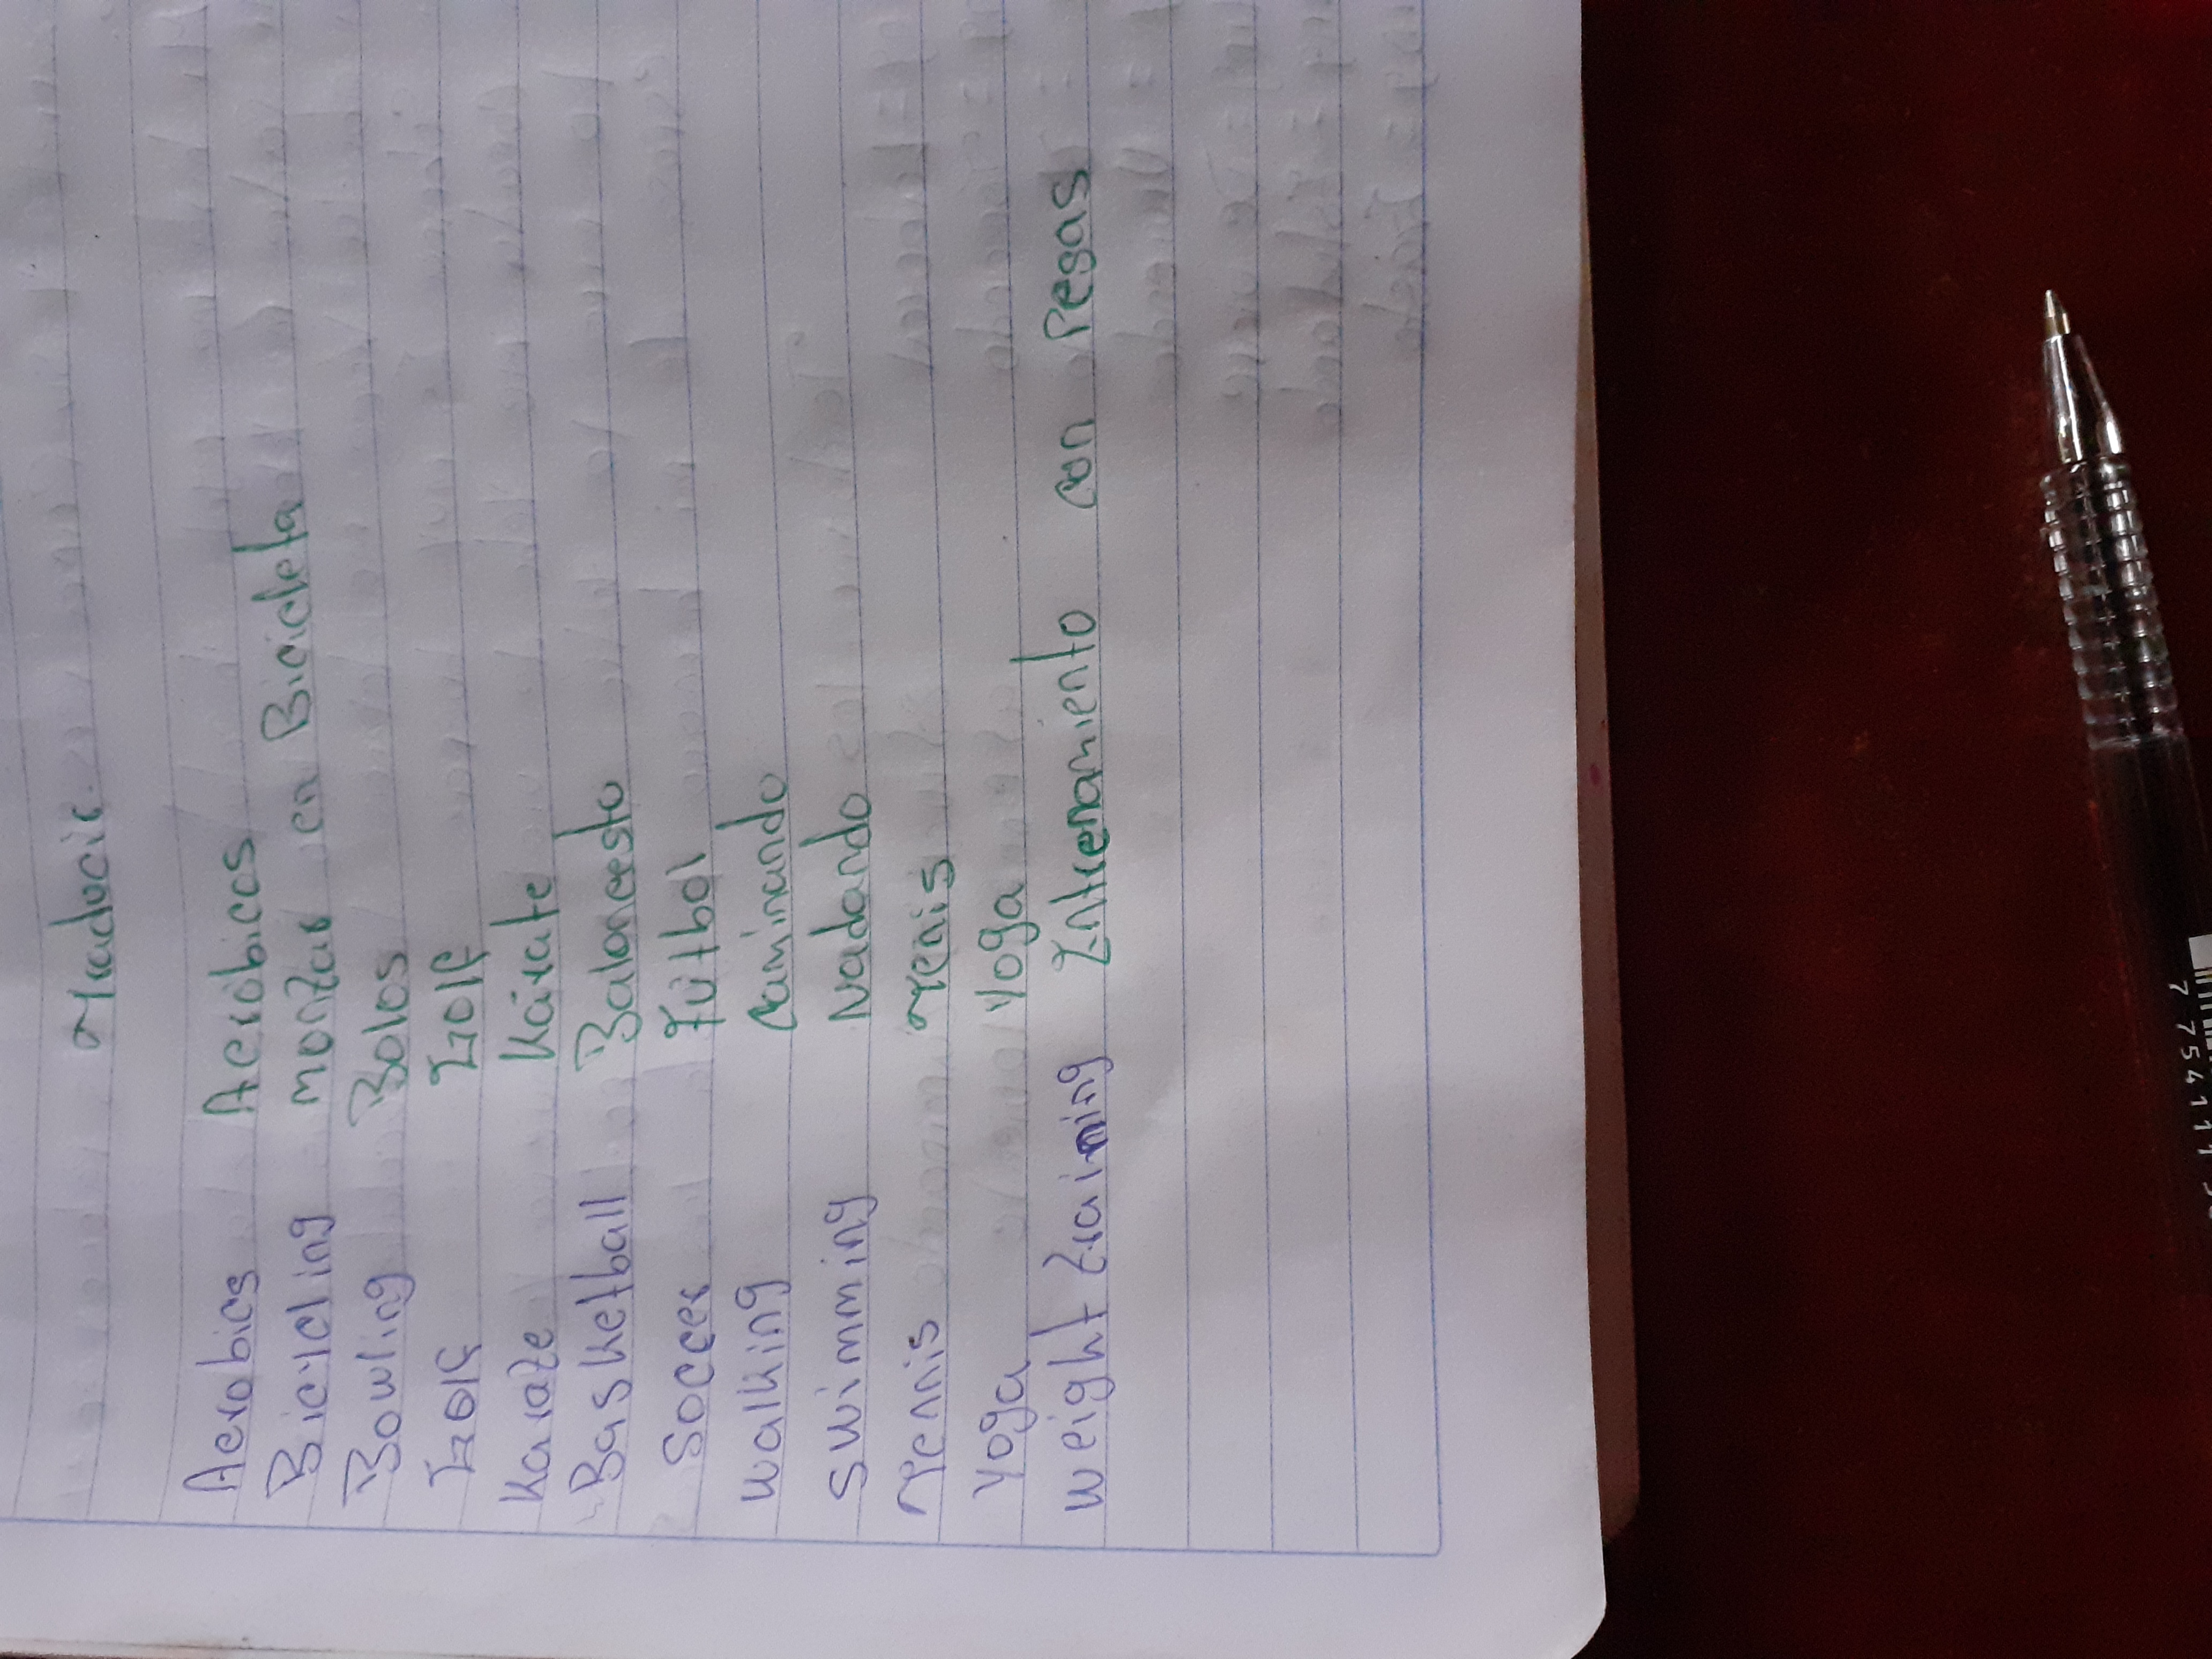 Traducir
Aerobics Aeróbicos
Bicicling montar en Bicicleta
Bowling Bolos
Golf Golf
Karate Kárate
Basketball Baloncesto
Soccer Fútbol
Walking Caminando
Swimming Nadando
Tennis Tenis
Yoga Yoga
Weight training Entrenamiento con Pesas